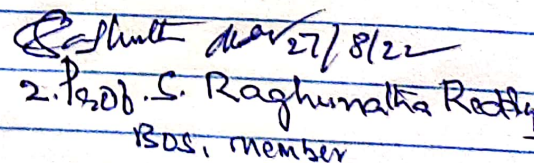 27/8/22
2. Prof. S. Raghunatha Reddy
BOS, member